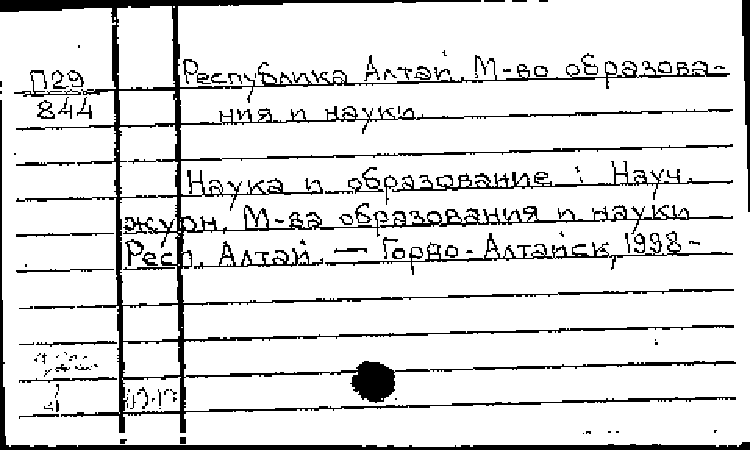 П29
844
Республика Алтай. М-во образова-
ния и науки.
Наука и образование : Науч.
журн. М-ва образования и науки
Респ. Алтай. — Горно-Алтайск, 1998-